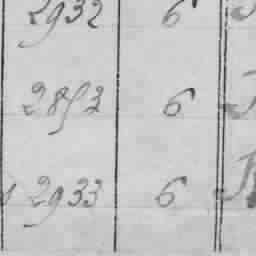 2932 6
2853 6
2933 6